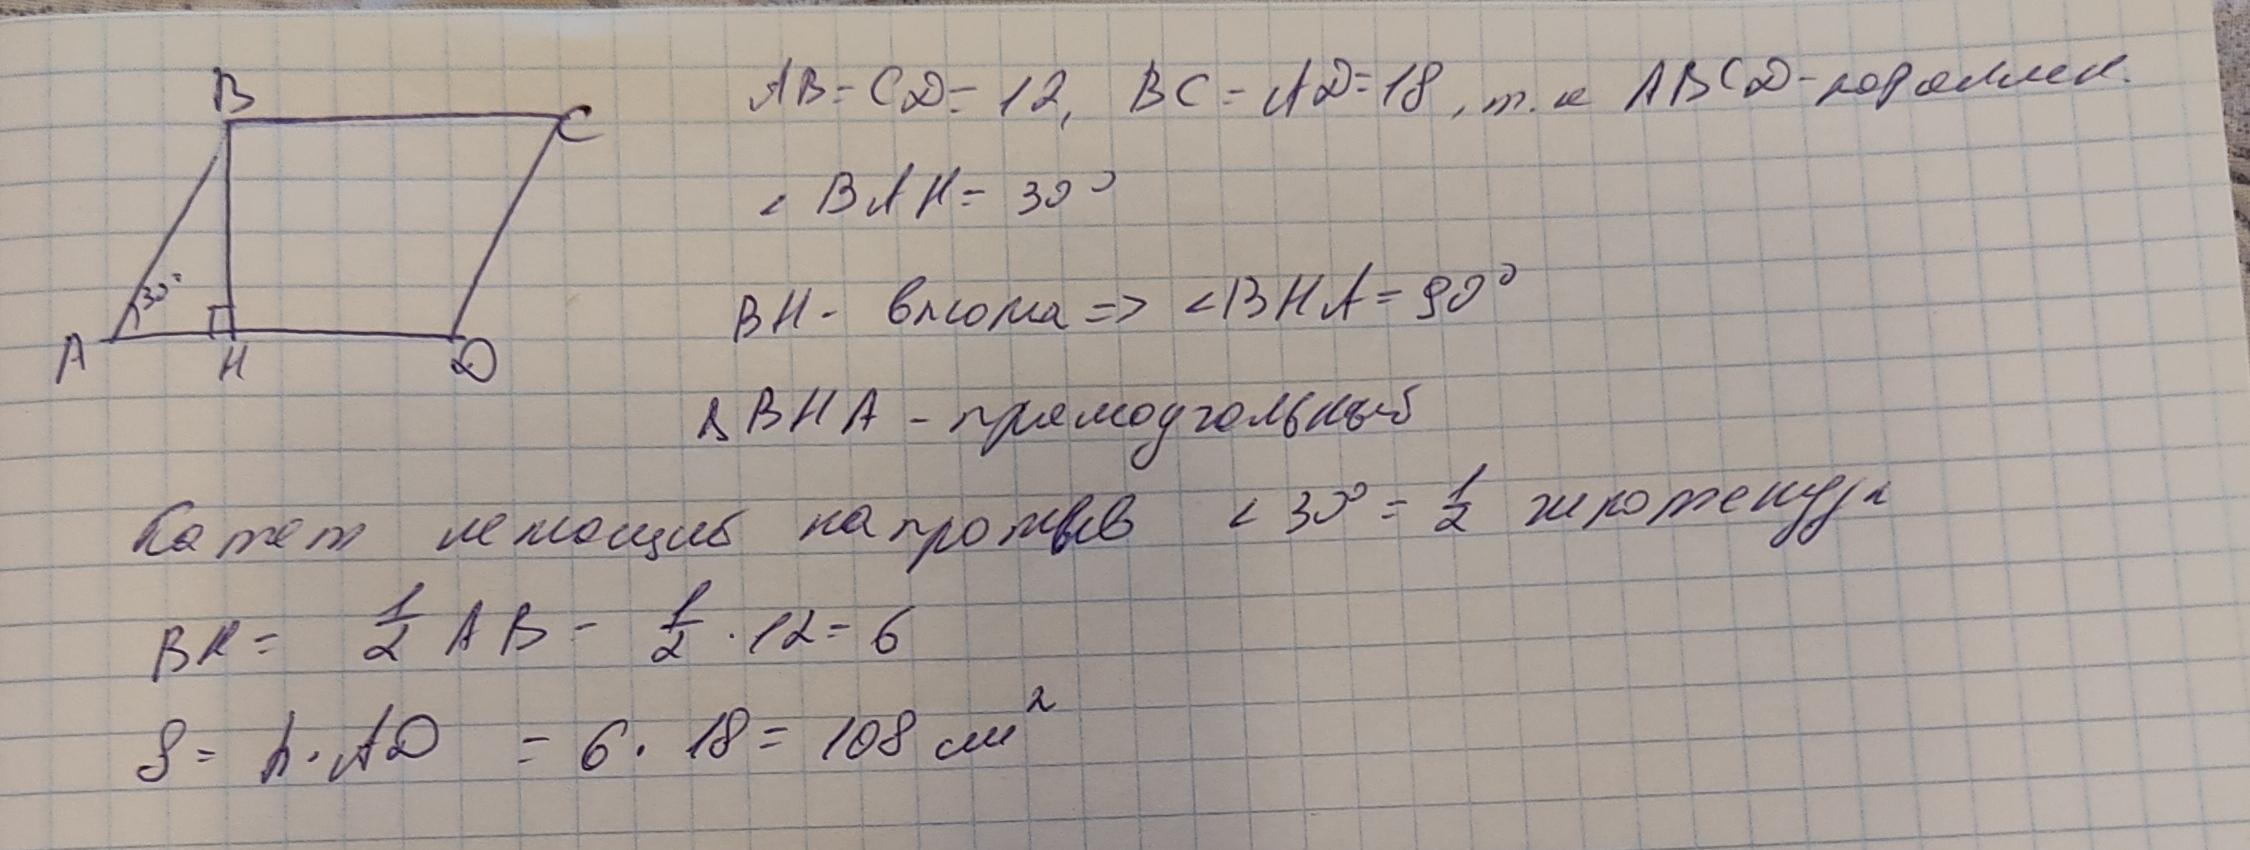 B
C
30°
A
H
D
AB = CD = 12, BC = AD = 18, т.к ABCD - параллел.
∠ BAH = 30°
BH - высота => ∠BHA = 90°
△ BHA - прямоугольный
Катет лежащий напротив ∠ 30° = 1/2 гипотенузы
BH = 1/2 AB = 1/2 · 12 = 6
S = h · AD = 6 · 18 = 108 см²